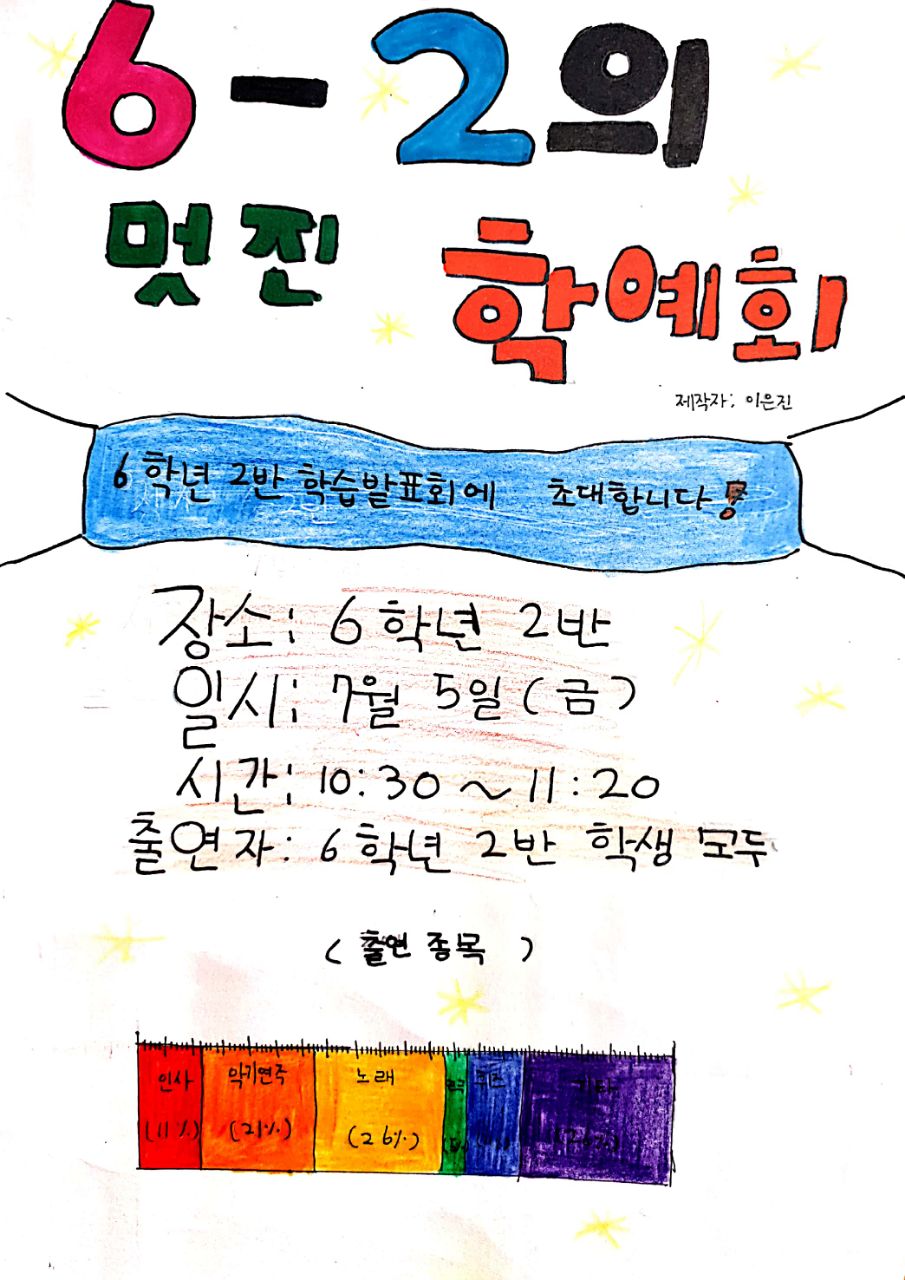 6-2의
멋진 학예회
제작자: 이은진
6학년 2반 학습발표회에 초대합니다!
장소: 6학년 2반
일시: 7월 5일(금)
시간: 10:30~11:20
출연자: 6학년 2반 학생 모두
(출연 종목)
인사 악기연주 노래 퀴즈 기타
(11%) (21%) (26%)